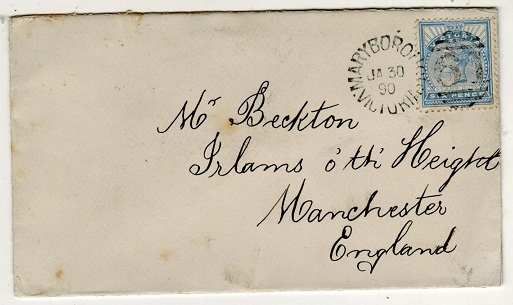 MARYBORO
JA 30
90
VICTORIA
SIX PENCE
Mr Beckton
Irlams o' th' Height
Manchester
England